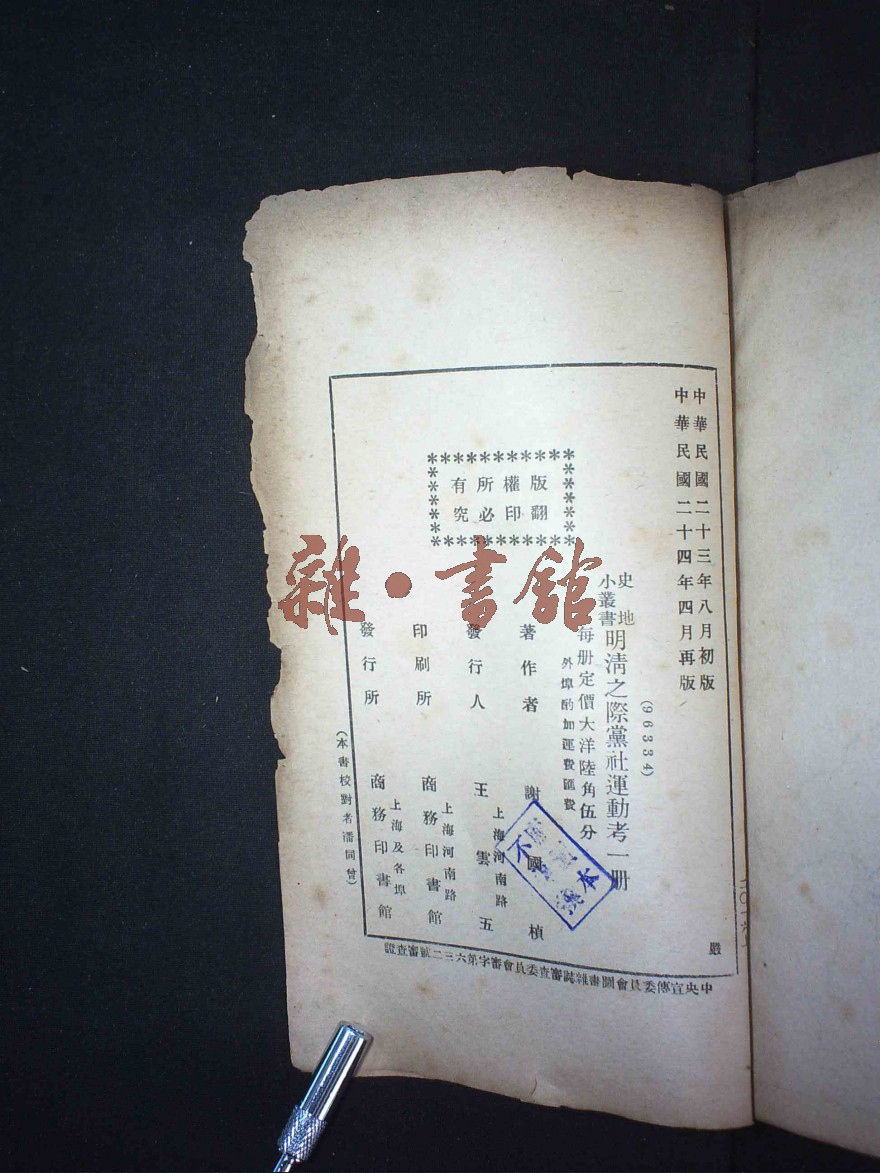 中華民國二十三年八月初版
中華民國二十四年四月再版
(96334)
史地
小叢書
明清之際黨社運動考一册
每册定價大洋陸角伍分
外埠酌加運費匯費
版權所有
翻印必究
著作者 謝國楨
發行人 王雲五
上海河南路
印刷所 商務印書館
上海河南路
發行所 商務印書館
上海及各埠
(本書校對者潘同曾)
嚴
中央宣傳委員會圖書雜誌審查委員會審字第六三二號審查證
雜·書館
本
不